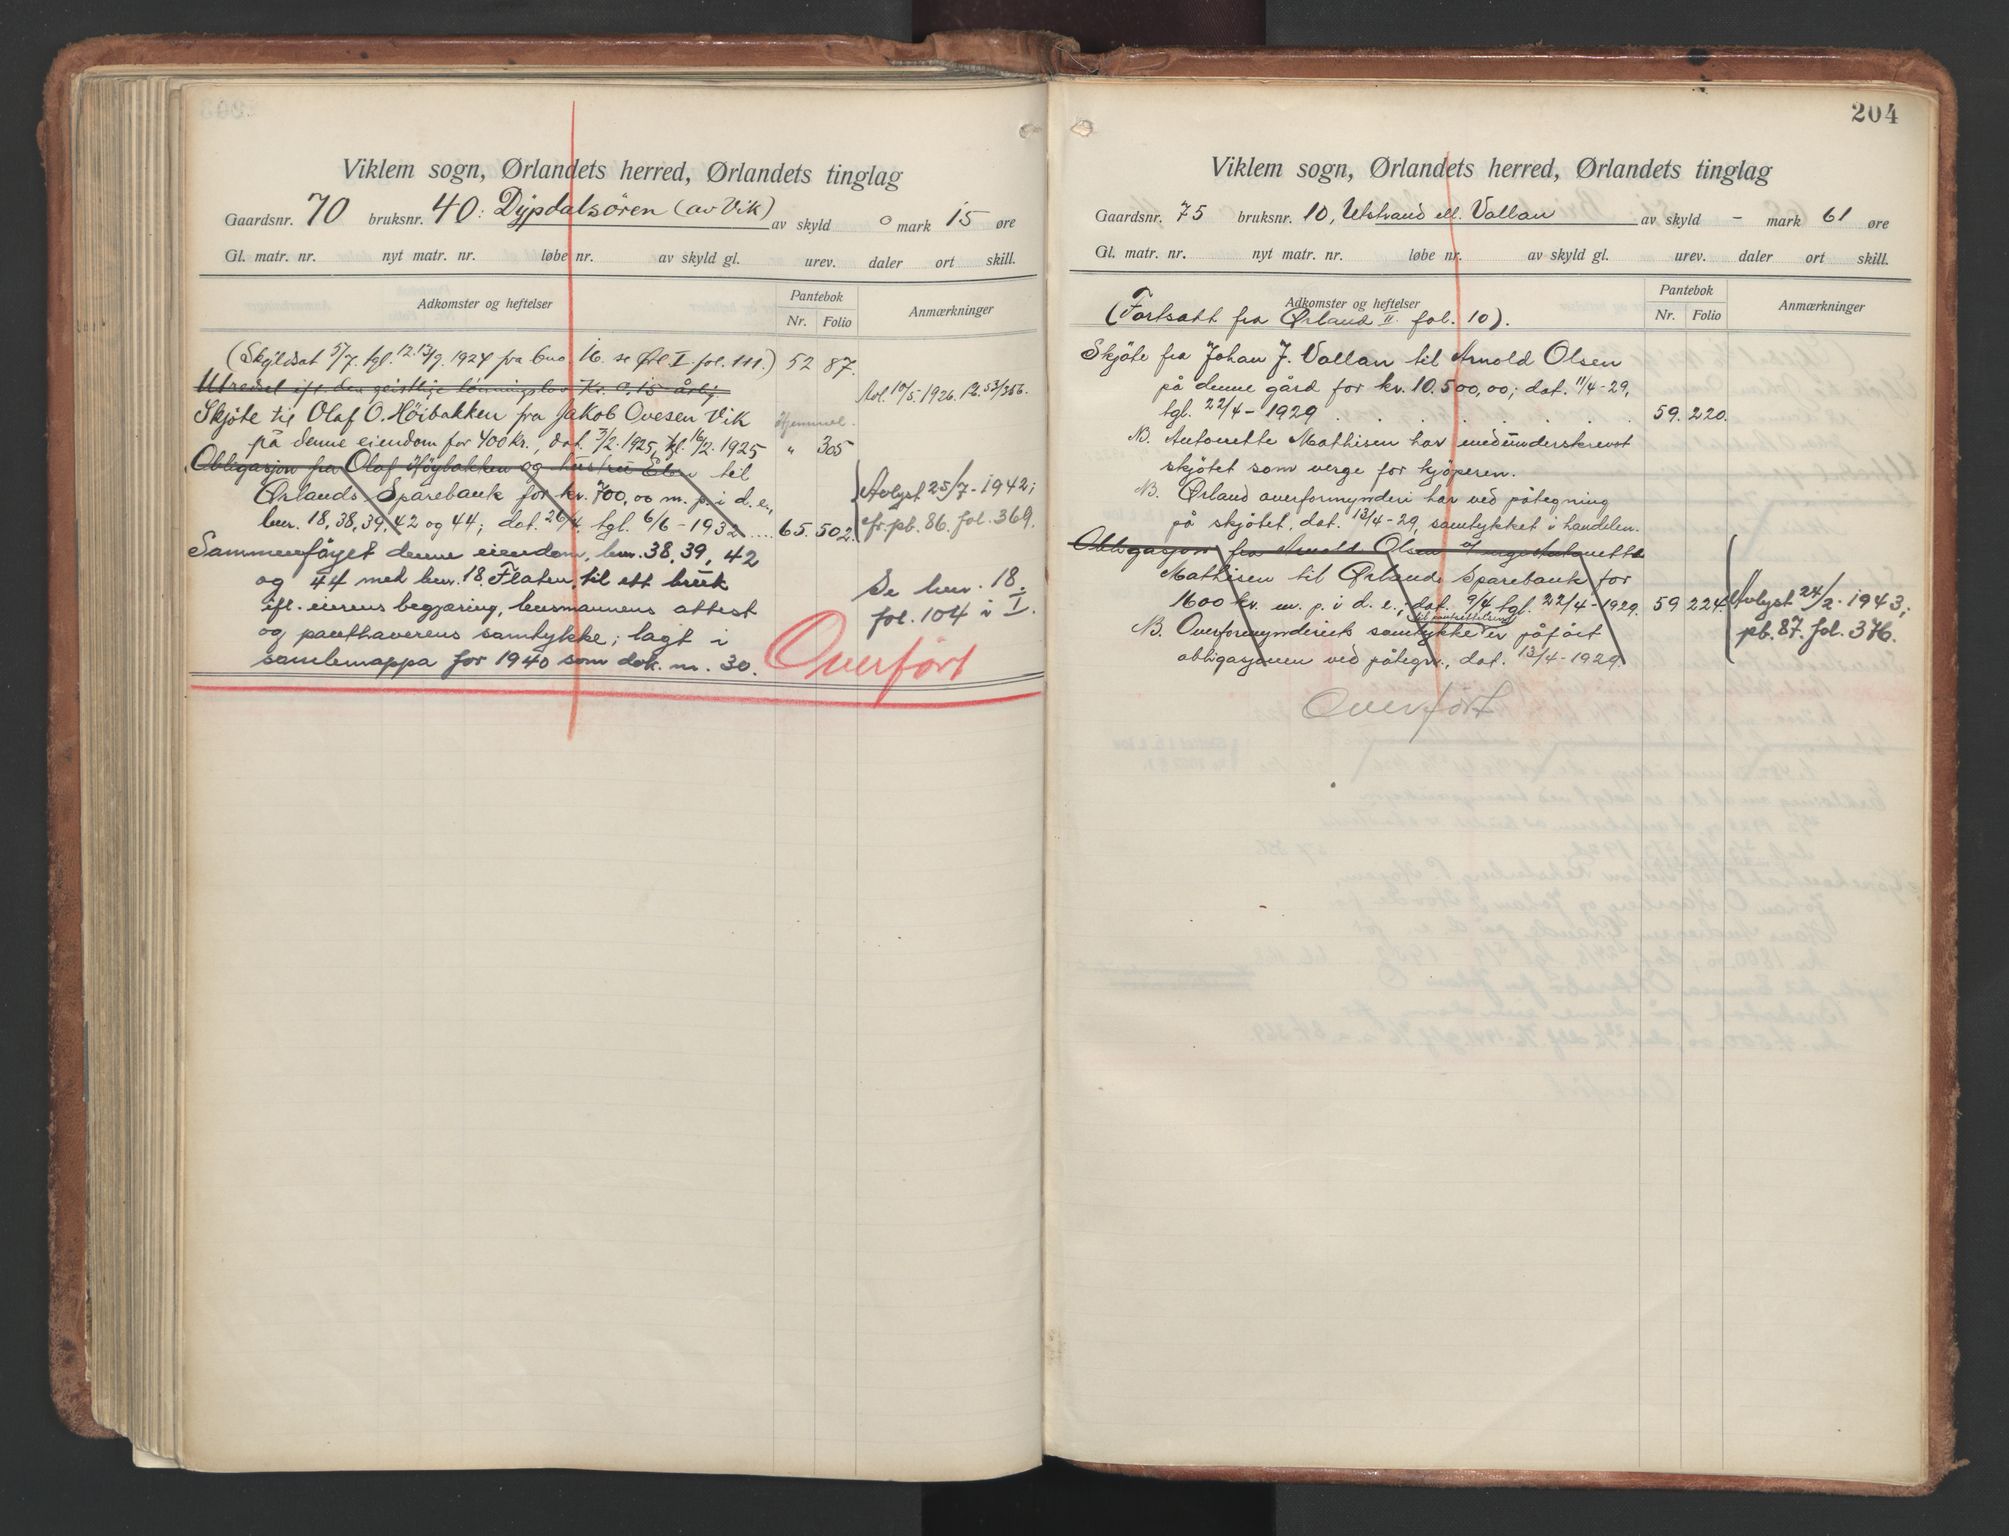 Viklem sogn, Ørlandets herred, Ørlandets tinglag
Gaardsnr. 70 bruksnr. 40: Dypdalsören (av Vik) av skyld 0 mark 15 øre
Gl. matr. nr. nyt matr. nr. løbe nr. av skyld gl. urev. daler ort skill.
Adkomster og heftelser Pantebok Nr. Folio Anmærkninger
(Skyldsat 5/7. tgl. 12.13/9. 1924 fra bno 16. se Ørl. I. fol. 111.) 52 87.
Utredsel ift den geistlige lønningslov Kr. 0,15 årlig Avl. 10/5-1926. Pb. 53/356.
Skjöte til Olaf O. Höibakken fra Jakob Ovesen Vik Hjemmel.
på denne eiendom for 400 kr., dat. 3/2. 1925, tgl. 16/2. 1925 " 305
Obligasjon fra Olaf Höybakken og hustru til
Ørlands Sparebank for kr. 700,00 m. p. i d. e., Avlyst 25/7-1942;
bnr. 18, 38, 39, 42 og 44; dat. 26/4. tgl. 6/6-1932 .... 65. 502. cfr. pb. 86. fol. 369.
Sammenföyet denne eiendom, bnr. 38, 39, 42
og 44 med bnr. 18. Flaten, til ett bruk Se bnr. 18.
ifl. eierens begjæring, lensmannens attest fol. 104 i I.
og panthaverens samtykke; lagt i
samlemappa for 1940 som dok. nr. 30. Overfört
204
Viklem sogn, Ørlandets herred, Ørlandets tinglag
Gaardsnr. 75 bruksnr. 10, Utstrand ell. Vallan av skyld - mark 61 øre
Gl. matr. nr. nyt matr. nr. løbe nr. av skyld gl. urev. daler ort skill.
Adkomster og heftelser Pantebok Nr. Folio Anmærkninger
(Fortsatt fra Ørland II. fol. 10).
Skjöte fra Johan J. Vallan til Arnold Olsen
på denne gård for kr. 10.500,00; dat. 11/4-29,
tgl. 22/4-1929 . . . . . . 59. 220.
NB. Antonette Mathisen har medunderskrevet
skjötet som verge for kjöperen.
NB. Ørland overformynderi har ved påtegning
på skjötet, dat. 13/4-29, samtykket i handelen.
Obligasjon fra Arnold Olsen Antonette
Mathisen til Ørlands Sparebank for
1600 kr. m. p. i d. e.; dat. 9/4 tgl. 22/4-1929. 59. 224. Avlyst 24/2-1943;
til pantsettelsen pb. 87. fol. 376.
NB. Overformynderiets samtykke er påfört
obligasjonen ved påtegn., dat. 13/4-1929.
Overfört